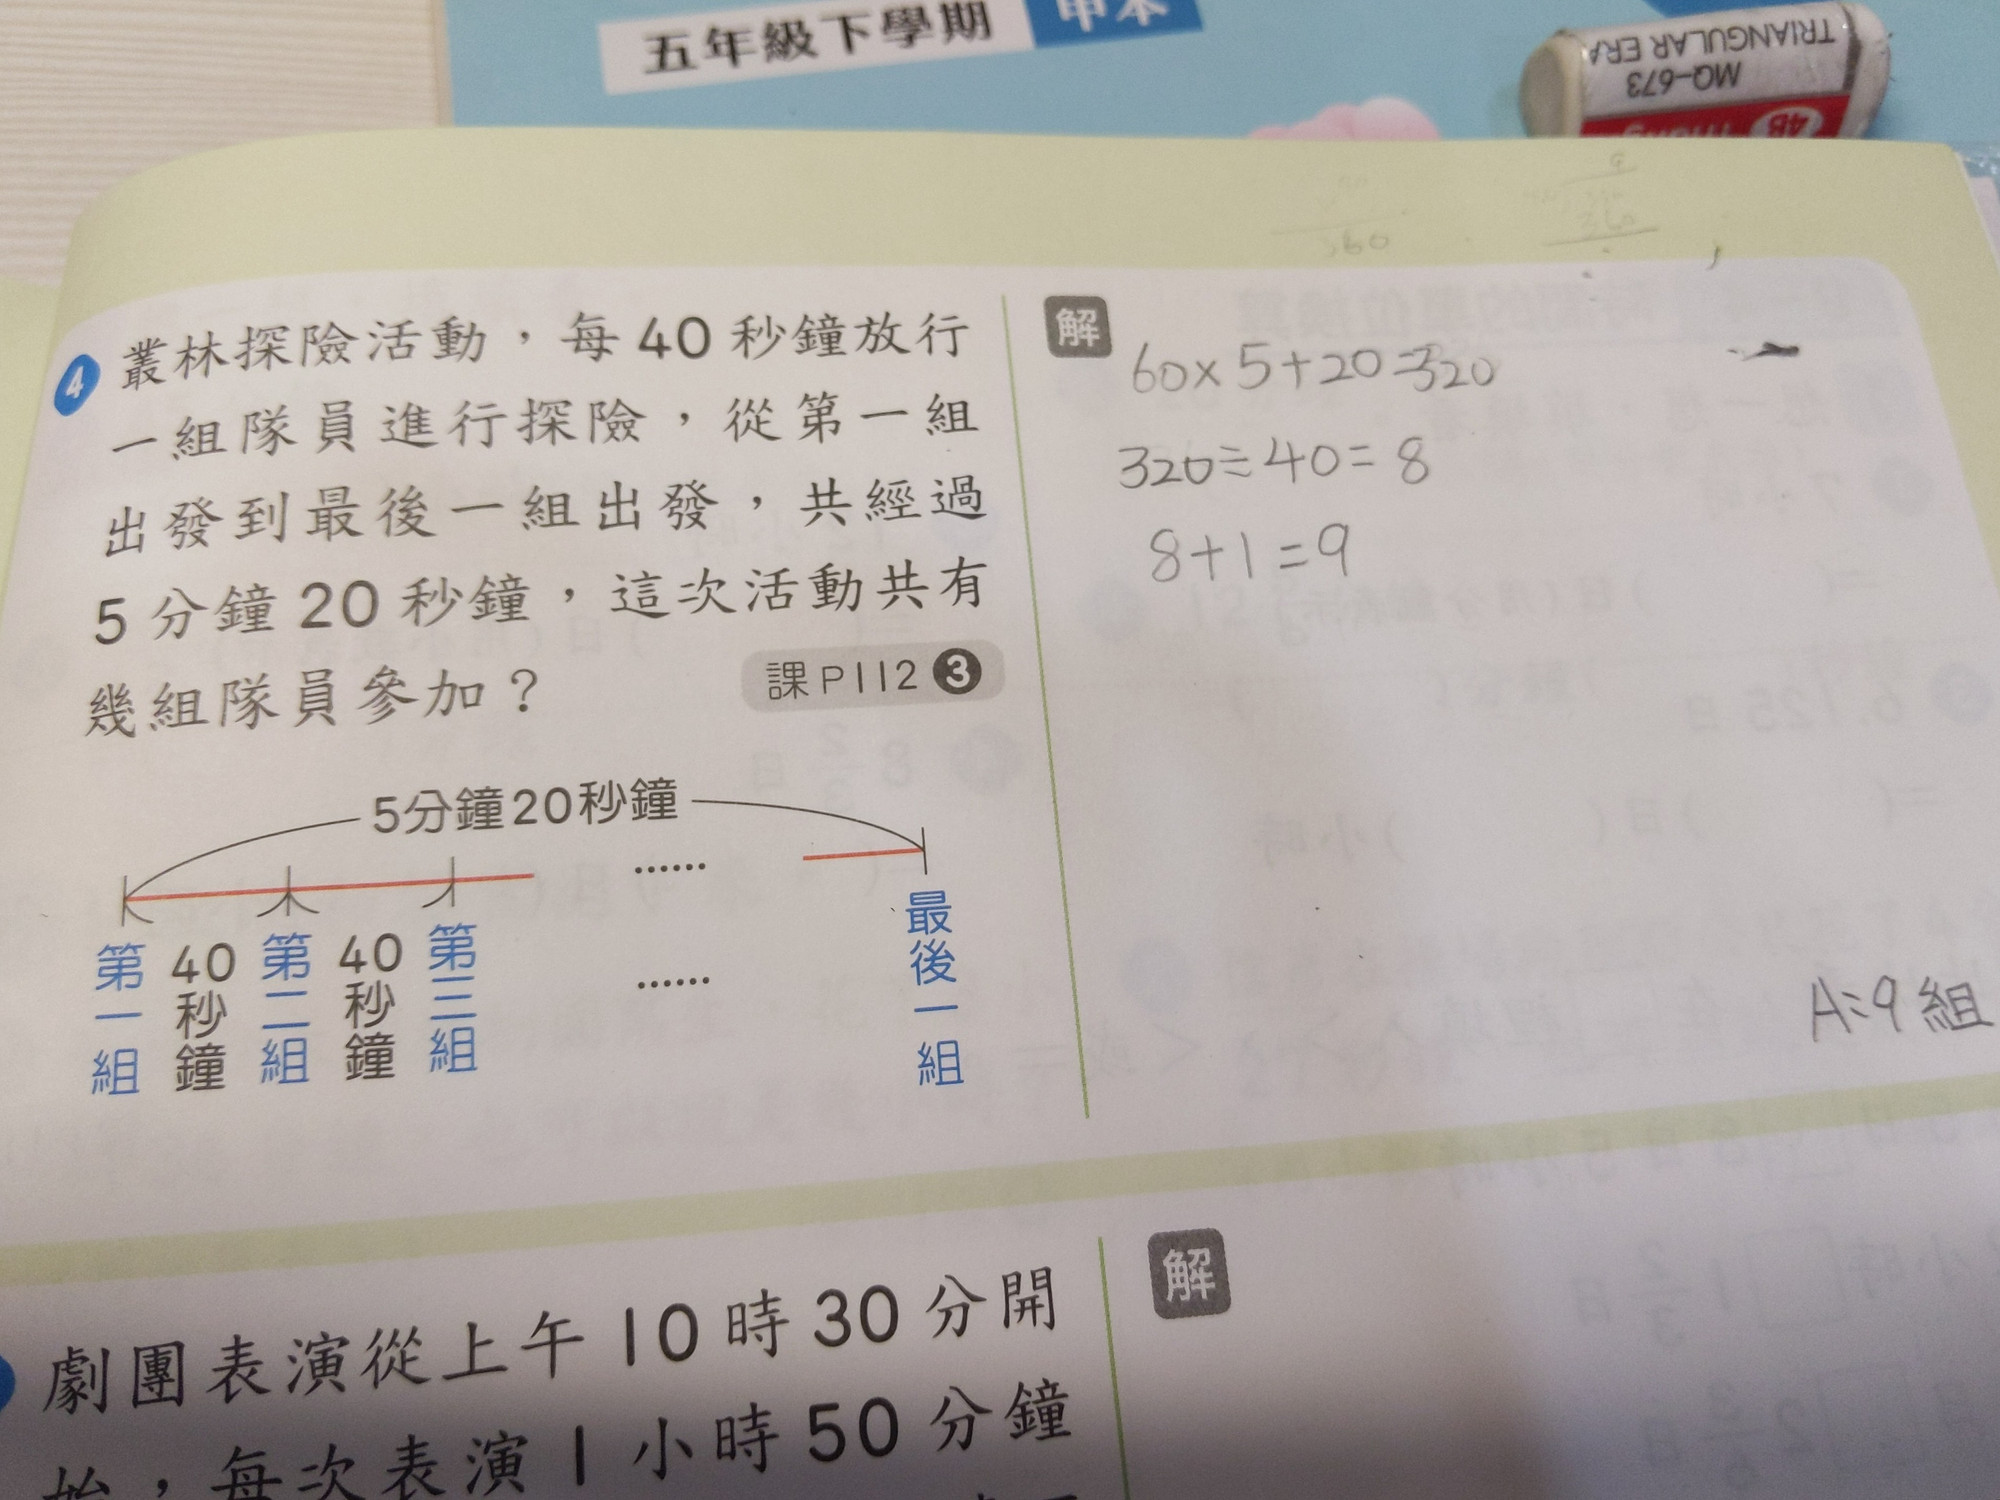 五年級下學期 甲本
TRIANGULAR ERA
MQ-673
4B
360
4 叢林探險活動，每40秒鐘放行
一組隊員進行探險，從第一組
出發到最後一組出發，共經過
5分鐘20秒鐘，這次活動共有
幾組隊員參加？
課P112 3
5分鐘20秒鐘
……
第一組 40秒鐘 第二組 40秒鐘 第三組 …… 最後一組
解
60×5+20=320
320÷40=8
8+1=9
A:9組
劇團表演從上午10時30分開
始，每次表演1小時50分鐘
解